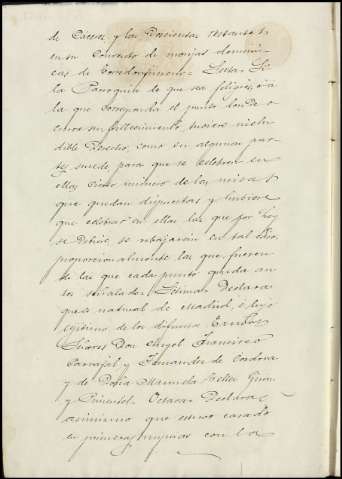 de Caceres y las Doscientas restantes
en su Convento de monjas domini
cas de Torredonjimeno. Sesta. Si
la Parroquia de que sea feligres, ó á
la que corresponda el punto donde o
curra su fallecimiento, tuviere
dible Derecho, como en algunas par
tes sucede para que se celebren en
ellas cierto número de las misas
que quedan dispuestas y hubiere
que celebrar en ellas las que por
se rebajarán en tal caso
proporcionalmente las que fueren
de las que cada punto queda an
tes señalado. Setima: Declara
que es natural de Madrid, é hijo
legitimo de los difuntos Exmos
Señores Don Angel Francisco
Carvajal y Fernandez de Cordova
y de Doña Manuela Tellez Giron
y Pimentel. Octava: Declara
asimismo que estuvo casado
en primeras nupcias con la